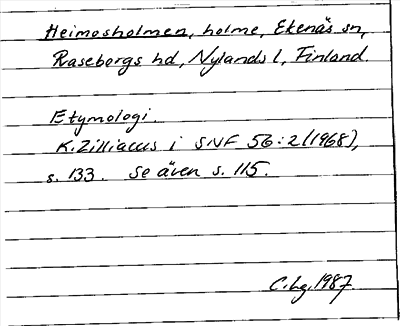 Heimosholmen, holme, Ekenäs sn,
Raseborgs hd, Nylands l, Finland.
Etymologi.
K. Zilliacus i SNF 56:2 (1968),
s. 133. Se även s. 115.
C.hg. 1987.